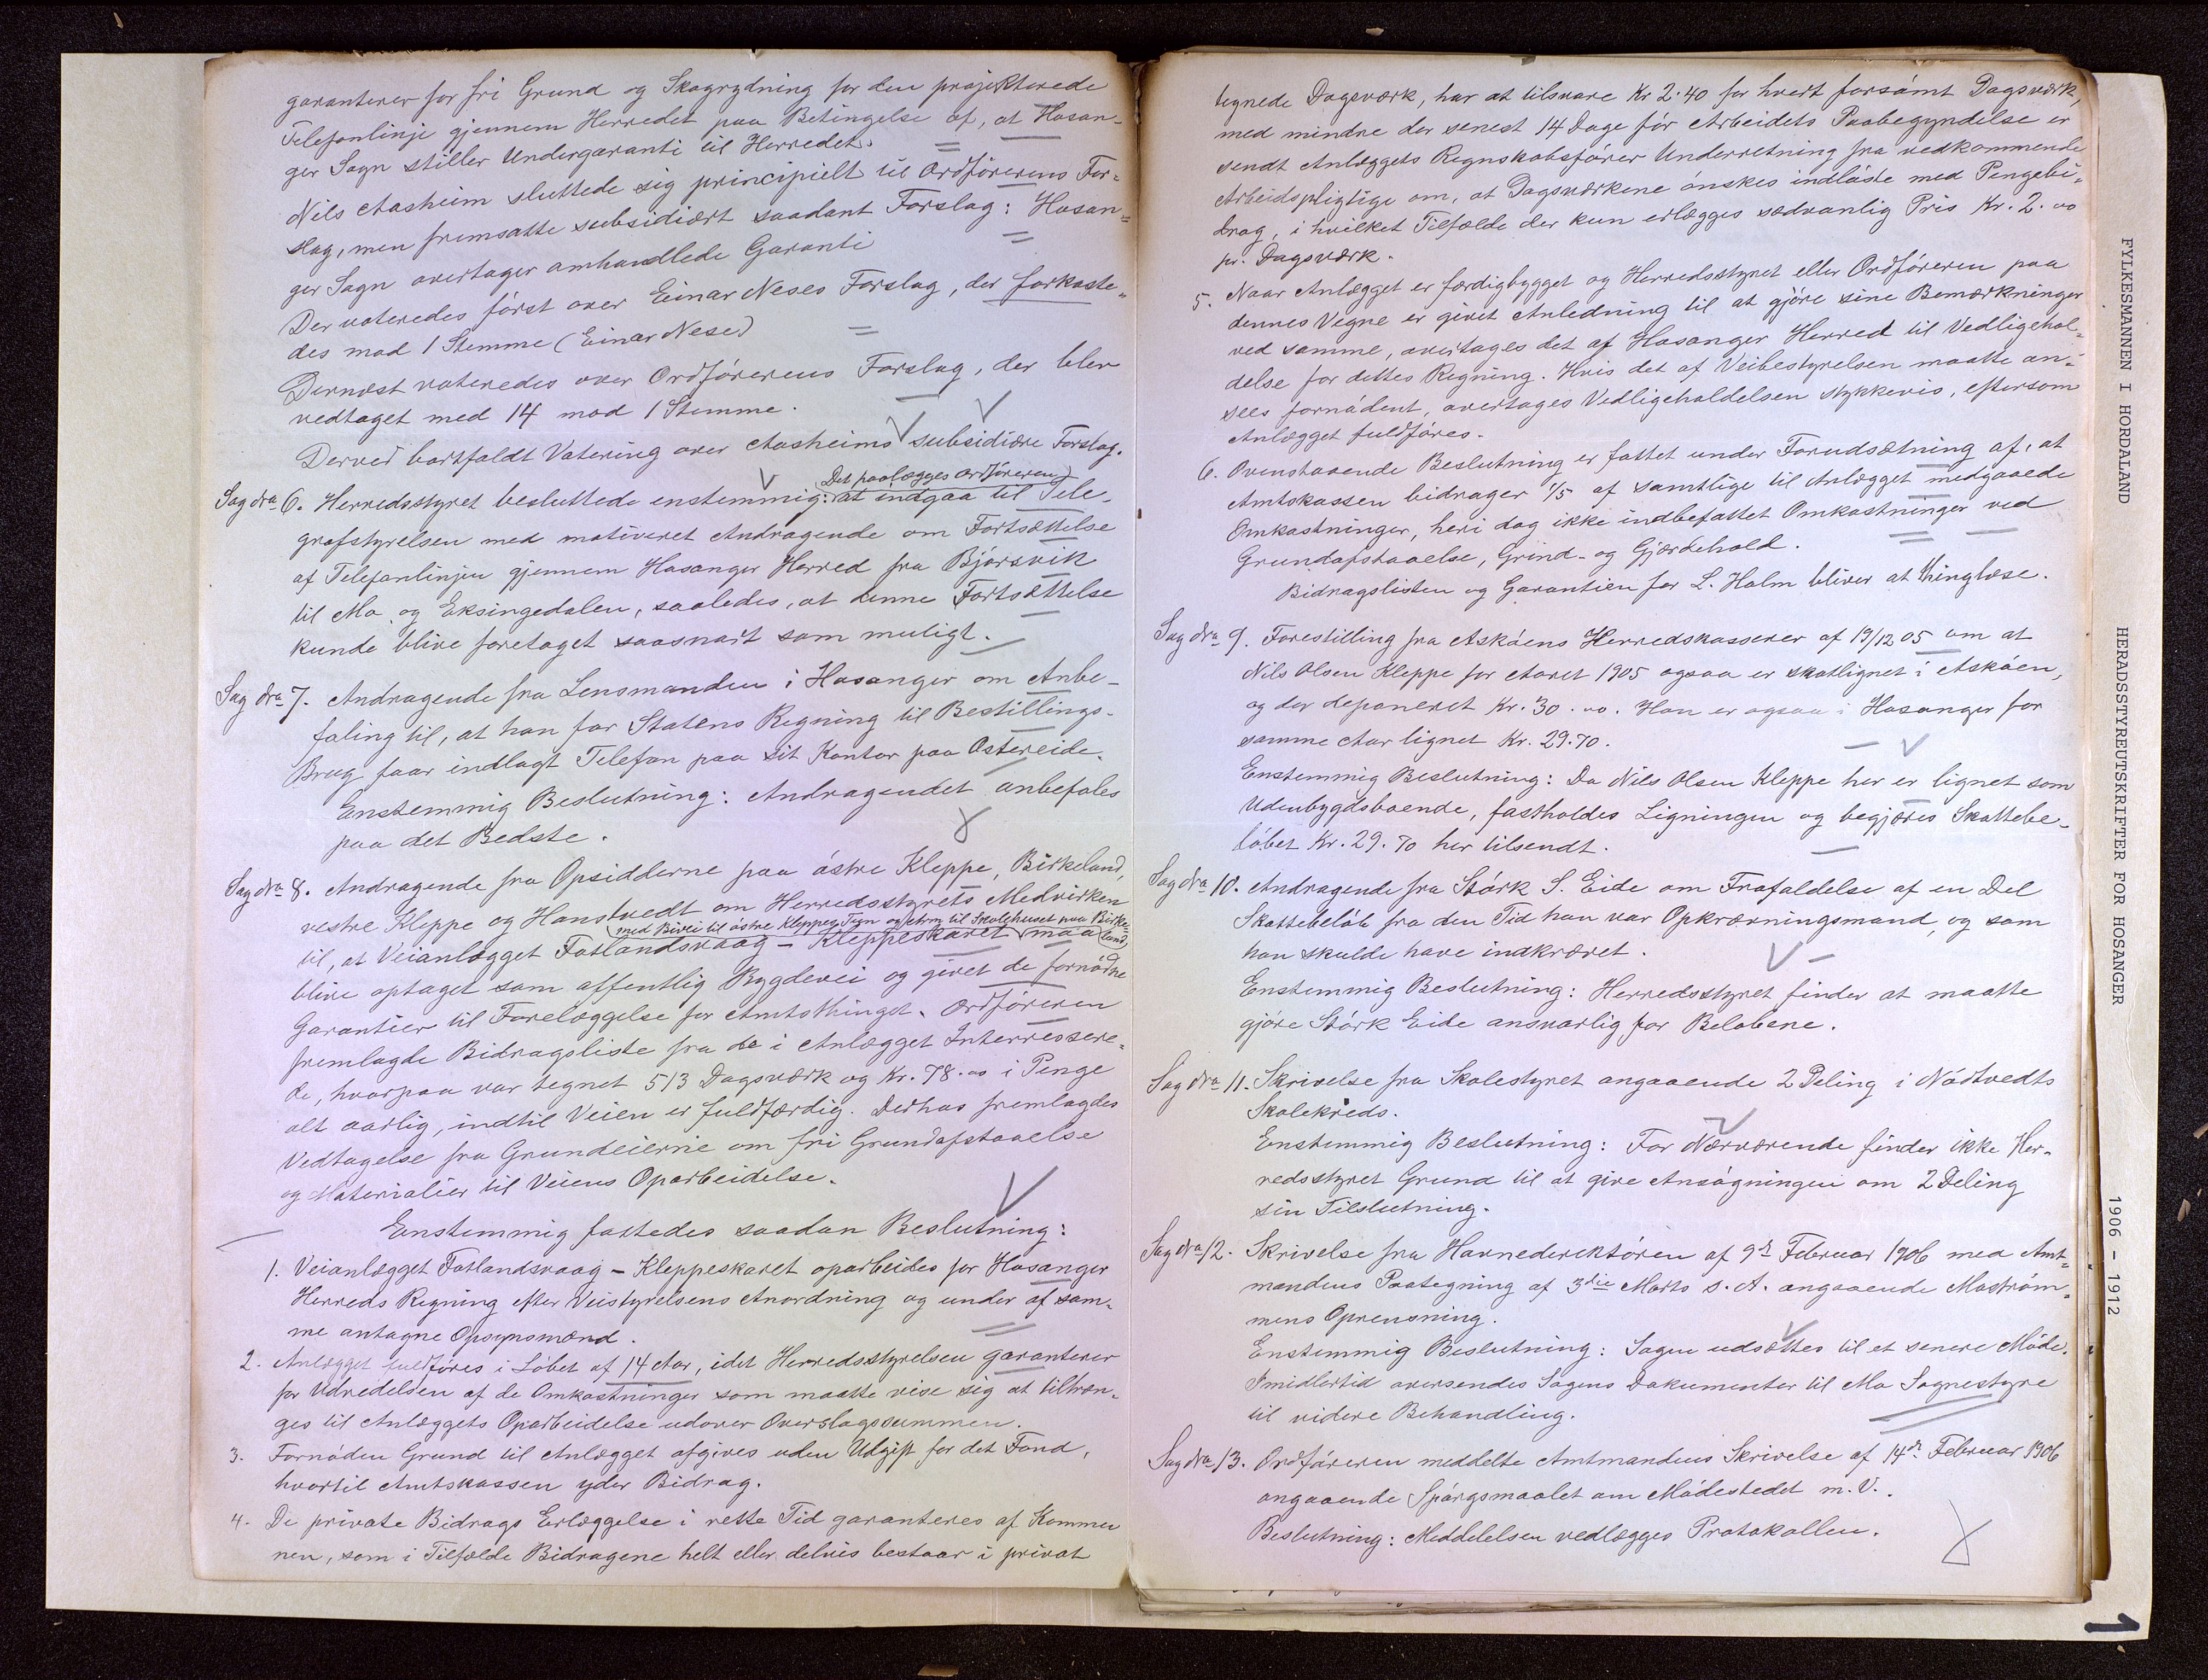 garanterer for fri Grund og Skogrydning for den projekterede
Telefonlinje gjennem Herredet paa Betingelse af, at Hosan-
ger Sogn stiller Undergaranti til Herredet.
Nils Aasheim sluttede sig principielt til Ordførerens For-
slag, men fremsatte subsidiært saadant Forslag: Hosan-
ger Sogn overtager omhandlede Garanti
Der voteredes først over Einar Neses Forslag, der forkaste-
des mod 1 Stemme (Einar Nese)
Dernæst voteredes over Ordførerens Forslag, der blev
vedtaget med 14 mod 1 Stemme.
Derved bortfaldt Votering over Aasheims subsidiære Forslag.
Det paalægges Ordføreren
Sag No 6. Herredsstyret besluttede enstemmig: at indgaa til Tele-
grafstyrelsen med motiveret Andragende om Fortsættelse
af Telefonlinjen gjennem Hosanger Herred fra Bjørsvik
til Mo og Eksingedalen, saaledes, at denne Fortsættelse
kunde blive foretaget saasnart som muligt.
Sag No 7. Andragende fra Lensmanden i Hosanger om Anbe-
faling til, at han for Statens Regning til Bestillings-
Brug faar indlagt Telefon paa sit Kontor paa Ostereide.
Enstemmig Beslutning: Andragendet anbefales
paa det Bedste.
Sag No 8. Andragende fra Opsidderne paa østre Kleppe, Birkeland,
vestre Kleppe og Hanstvedt om Herredsstyrets Medvirken
(med Bivei til østre Kleppes Tun og Arm til Skolehuset paa Birke-
land)
til, at Veianlægget Fotlandsvaag - Kleppeskaret maa
blive optaget som offentlig Bygdevei og givet de fornødne
Garantier til Forelæggelse for Amtsthinget. Ordføreren
fremlagde Bidragsliste fra de i Anlægget Interressere-
de, hvorpaa var tegnet 513 Dagsværk og Kr. 78.00 i Penge
alt aarlig, indtil Veien er fuldfærdig. Derhos fremlagdes
Vedtagelse fra Grundeierne om fri Grundafstaaelse
og Materialier til Veiens Oparbeidelse.
Enstemmig fattedes saadan Beslutning:
1. Veianlægget Fotlandsvaag - Kleppeskaret oparbeides for Hosanger
Herreds Regning efter Veistyrelsens Anordning og under af sam-
me antagne Opsynsmænd.
2. Anlægget fuldføres i Løbet af 14 Aar, idet Herredsstyrelsen garanterer
for Udredelsen af de Omkostninger som maatte vise sig at tiltræn-
ges til Anlæggets Oparbeidelse udover Overslagssummen.
3. Fornøden Grund til Anlægget afgives uden Udgift for det Fond,
hvortil Amtskassen yder Bidrag.
4. De private Bidrags Erlæggelse i rette Tid garanteres af Kommu
nen, som i Tilfælde Bidragene helt eller delvis bestaar i privat
tegnede Dagsværk, har at tilsvare Kr 2.40 for hvert forsømt Dagsværk,
med mindre der senest 14 Dage før Arbeidets Paabegyndelse er
sendt Anlæggets Regnskabsfører Underretning fra vedkommende
Arbeidspligtige om, at Dagsværkene ønskes indløste med Pengebi-
drag, i hvilket Tilfælde der kun erlægges sædvanlig Pris Kr. 2.00
pr. Dagsværk.
5. Naar Anlægget er færdigbygget og Herredsstyret eller Ordføreren paa
dennes Vegne er givet Anledning til at gjøre sine Bemærkninger
ved samme, overtages det af Hosanger Herred til Vedligehol-
delse for dettes Regning. Hvis det af Veibestyrelsen maatte an-
sees fornødent, overtages Vedligeholdelsen stykkevis, eftersom
Anlægget fuldføres.
6. Ovenstaaende Beslutning er fattet under Forudsætning af, at
Amtskassen bidrager 1/5 af samtlige til Anlægget medgaaede
Omkostninger, heri dog ikke indbefattet Omkostninger ved
Grundafstaaelse, Grind- og Gjærdehold.
Bidragslisten og Garantien for L. Holm bliver at thinglæse.
Sag No 9. Forestilling fra Askøens Herredskasserer af 19/12 05 om at
Nils Olsen Kleppe for Aaret 1905 ogsaa er skatlignet i Askøen,
og der deponeret Kr. 30.00. Han er ogsaa i Hosanger for
samme Aar lignet Kr. 29.70.
Enstemmig Beslutning: Da Nils Olsen Kleppe her er lignet som
Udenbygdsboende, fastholdes Ligningen og begjæres Skattebe-
løbet Kr. 29.70 her tilsendt.
Sag No 10. Andragende fra Størk S. Eide om Frafaldelse af en Del
Skattebeløb fra den Tid han var Opkrævningsmand, og som
han skulde have indkrævet.
Enstemmig Beslutning: Herredsstyret finder at maatte
gjøre Størk Eide ansvarlig for Beløbene.
Sag No 11. Skrivelse fra Skolestyret angaaende 2 Deling i Nødtvedts
Skolekreds.
Enstemmig Beslutning: For Nærværende finder ikke Her-
redsstyret Grund til at give Ansøgningen om 2 Deling
sin Tilslutning.
Sag No 12. Skrivelse fra Havnedirektøren af 9de Februar 1906 med Amt-
mandens Paategning af 3die Marts s. A. angaaende Mostrøm-
mens Oprensning.
Enstemmig Beslutning: Sagen udsættes til et senere Møde.
Imidlertid oversendes Sagens Dokumenter til Mo Sognestyre
til videre Behandling.
Sag No 13. Ordføreren meddelte Amtmandens Skrivelse af 14de Februar 1906
angaaende Spørgsmaalet om Mødestedet m. V..
Beslutning: Meddelelsen vedlægges Protokollen.
FYLKESMANNEN I HORDALAND
HERADSSTYREUTSKRIFTER FOR HOSANGER
1906 - 1912
1